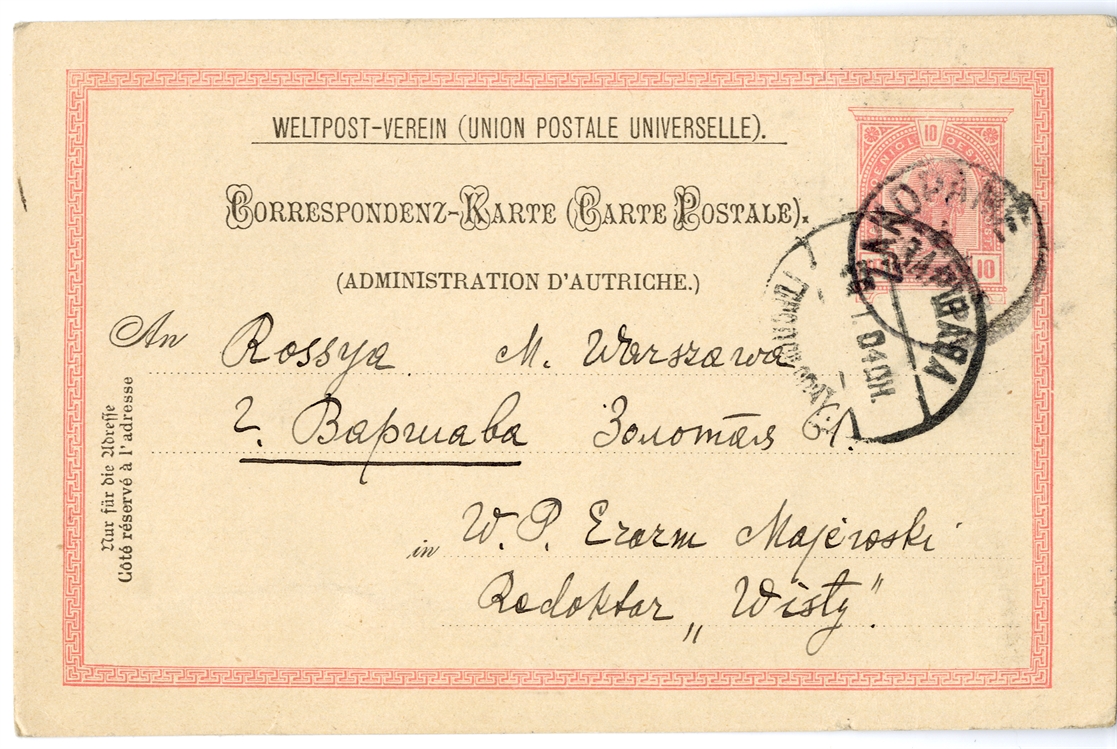 WELTPOST-VEREIN (UNION POSTALE UNIVERSELLE).
CORRESPONDENZ-KARTE (CARTE POSTALE).
(ADMINISTRATION D'AUTRICHE.)
10
10
ZAKOPANE
ВАРШАВА
An Rossya M. Warszawa
г. Варшава Золотая 61.
in W. P. Erazm Majewski
Redaktor „Wisły".
Nur für die Adresse
Côté réservé à l'adresse